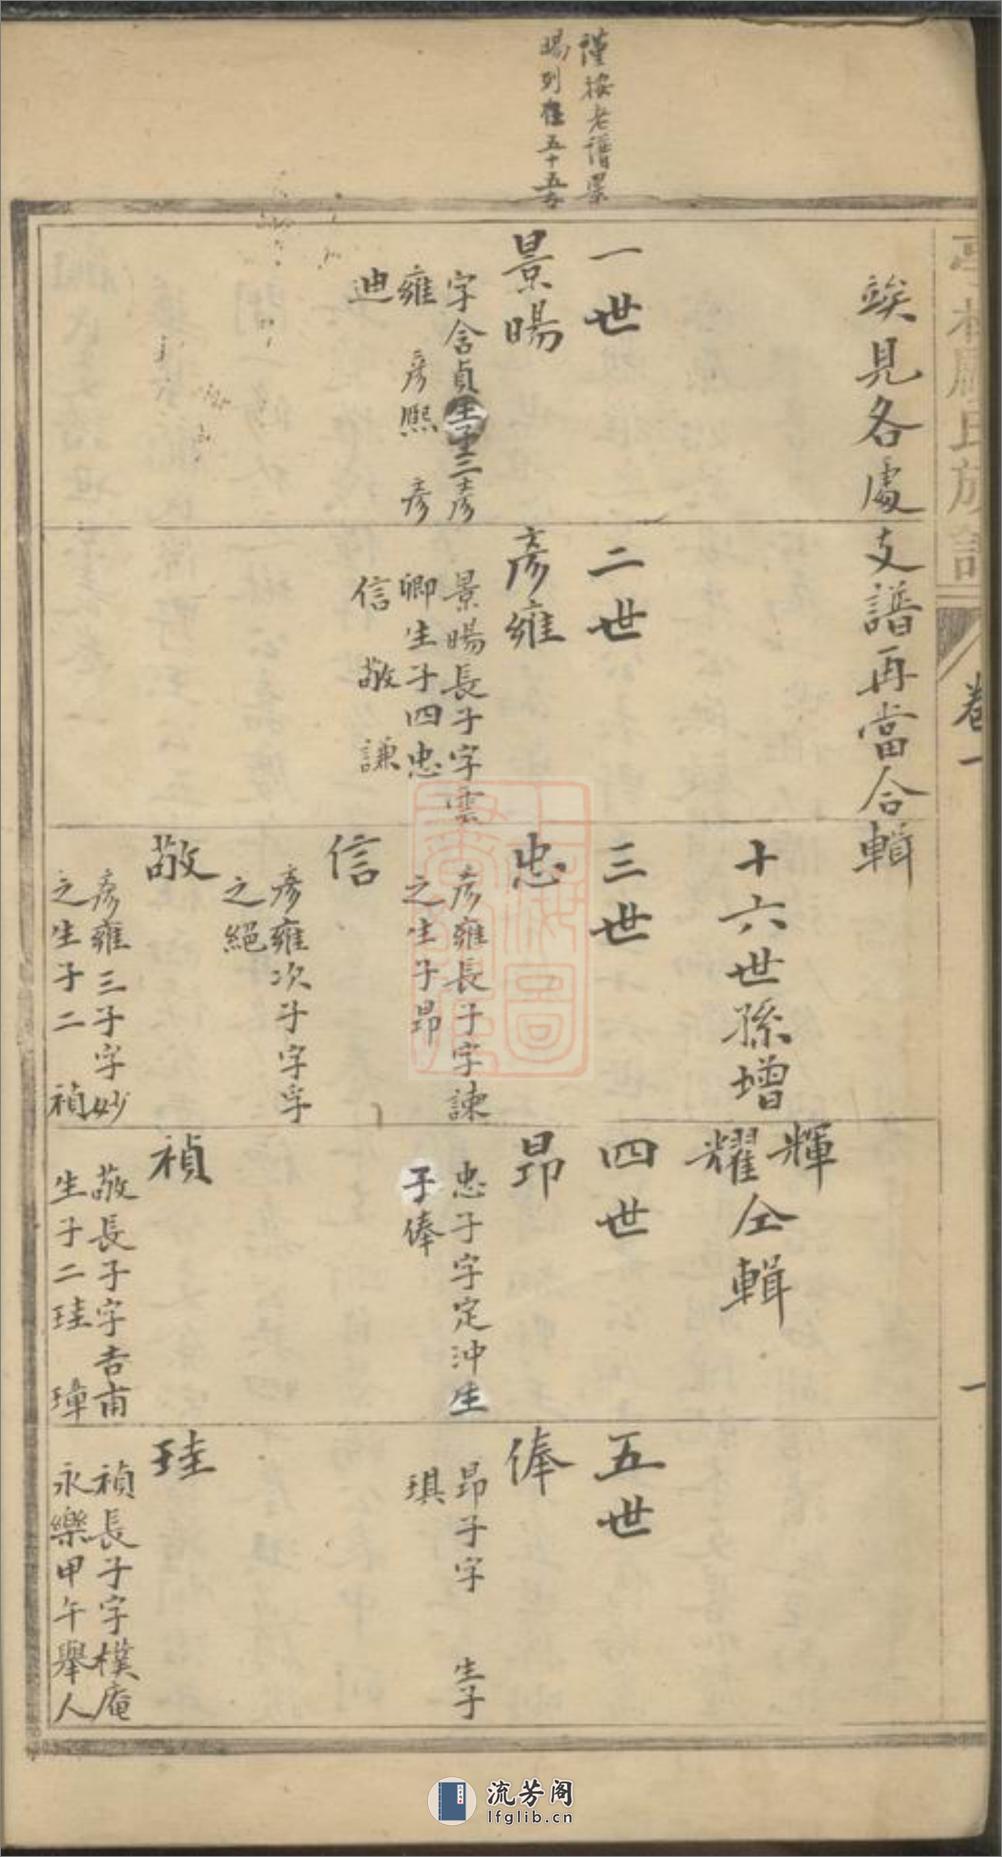 謹按老譜景
暘列在五十五
亭林顧氏族譜
卷一
一
竢見各處支譜再當合輯
十六世孫增
輝
耀仝輯
一世
景暘
字含貞生子三彥
雍 彥熙 彥
迪
二世
彥雍
景暘長子字雲
卿生子四忠
信 敬 謙
三世
忠
彥雍長子字諫
之生子昂
信
彥雍次子字孚
之絕
敬
彥雍三子字妙
之生子二 禎
四世
昂
忠子字定沖生
子俸
禎
敬長子字吉甫
生子二珪 璋
五世
俸
昂子字 生子
琪
珪
禎長子字樸庵
永樂甲午舉人
上海圖書館藏
流芳阁
lfglib.cn